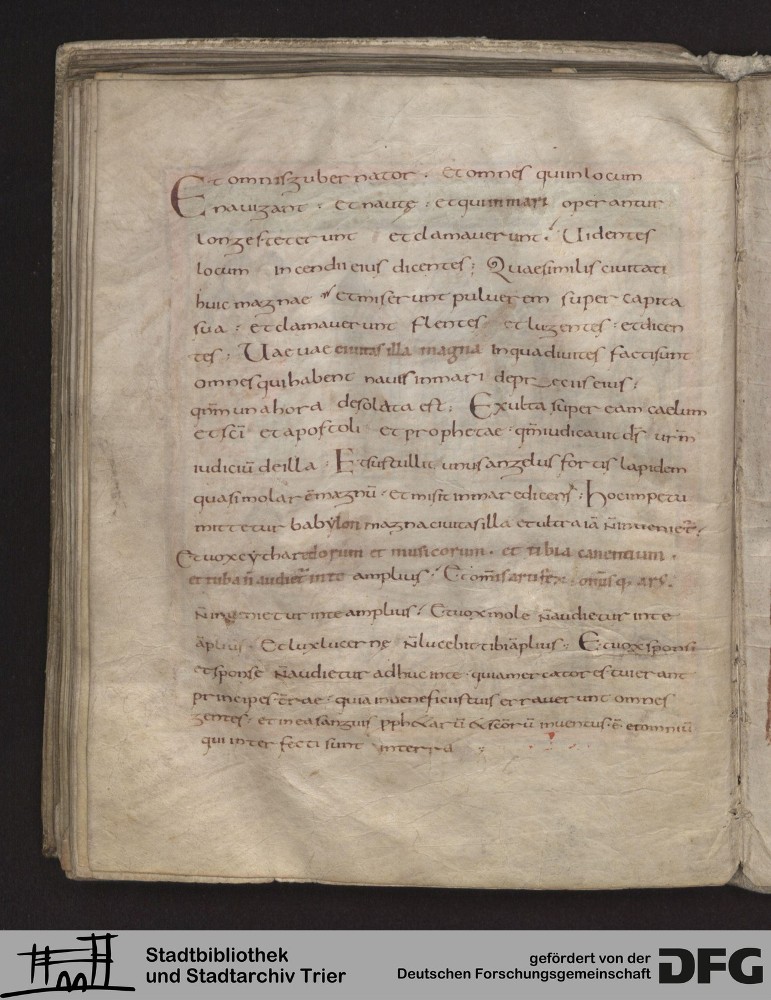 Et omnis gubernator · Et omnes qui in locum
navigant · et nautę · et qui in mari operantur
longe steterunt et clamaverunt · Videntes
locum incendii eius dicentes ; Quae similis civitati
huic magnae et miserunt pulverem super capita
sua · et clamaverunt flentes et lugentes · et dicen
tes · Vae vae civitas illa magna in qua divites facti sunt
omnes qui habent naves in mari de preciis eius ;
qm̄ una hora desolata est ; Exulta super eam caelum
et sc̄i et apostoli et prophetae · qm̄ iudicavit ds̄ vr̄m
iudiciū de illa · Et sustullit unus angelus fortis lapidem
quasi molarē magnū · et misit in mare dicens · Hoc impetu
mittetur babylon magna civitas illa et ultra iā n̄ invenietr̄
Et vox cytharedorum et musicorum · et tibia canentium ·
et tuba n̄ audietr̄ in te amplius Et om̄is artifex · om̄isq · ars ·
n̄ invenietur in te amplius Et vox mole n̄ audietur in te
āplius · Et lux lucernę n̄ lucebit tibi āplius · Et vox sponsi
et sponsę n̄ audietur adhuc in te · quia mercatores tui erant
principes t̄rrae · quia in veneficiis tuis erraverunt omnes
gentes · et in ea sanguis pphetarū et sc̄orū inventus · ē et omniū
qui interfecti sunt in terra
Stadtbibliothek
und Stadtarchiv Trier
gefördert von der
Deutschen Forschungsgemeinschaft
DFG